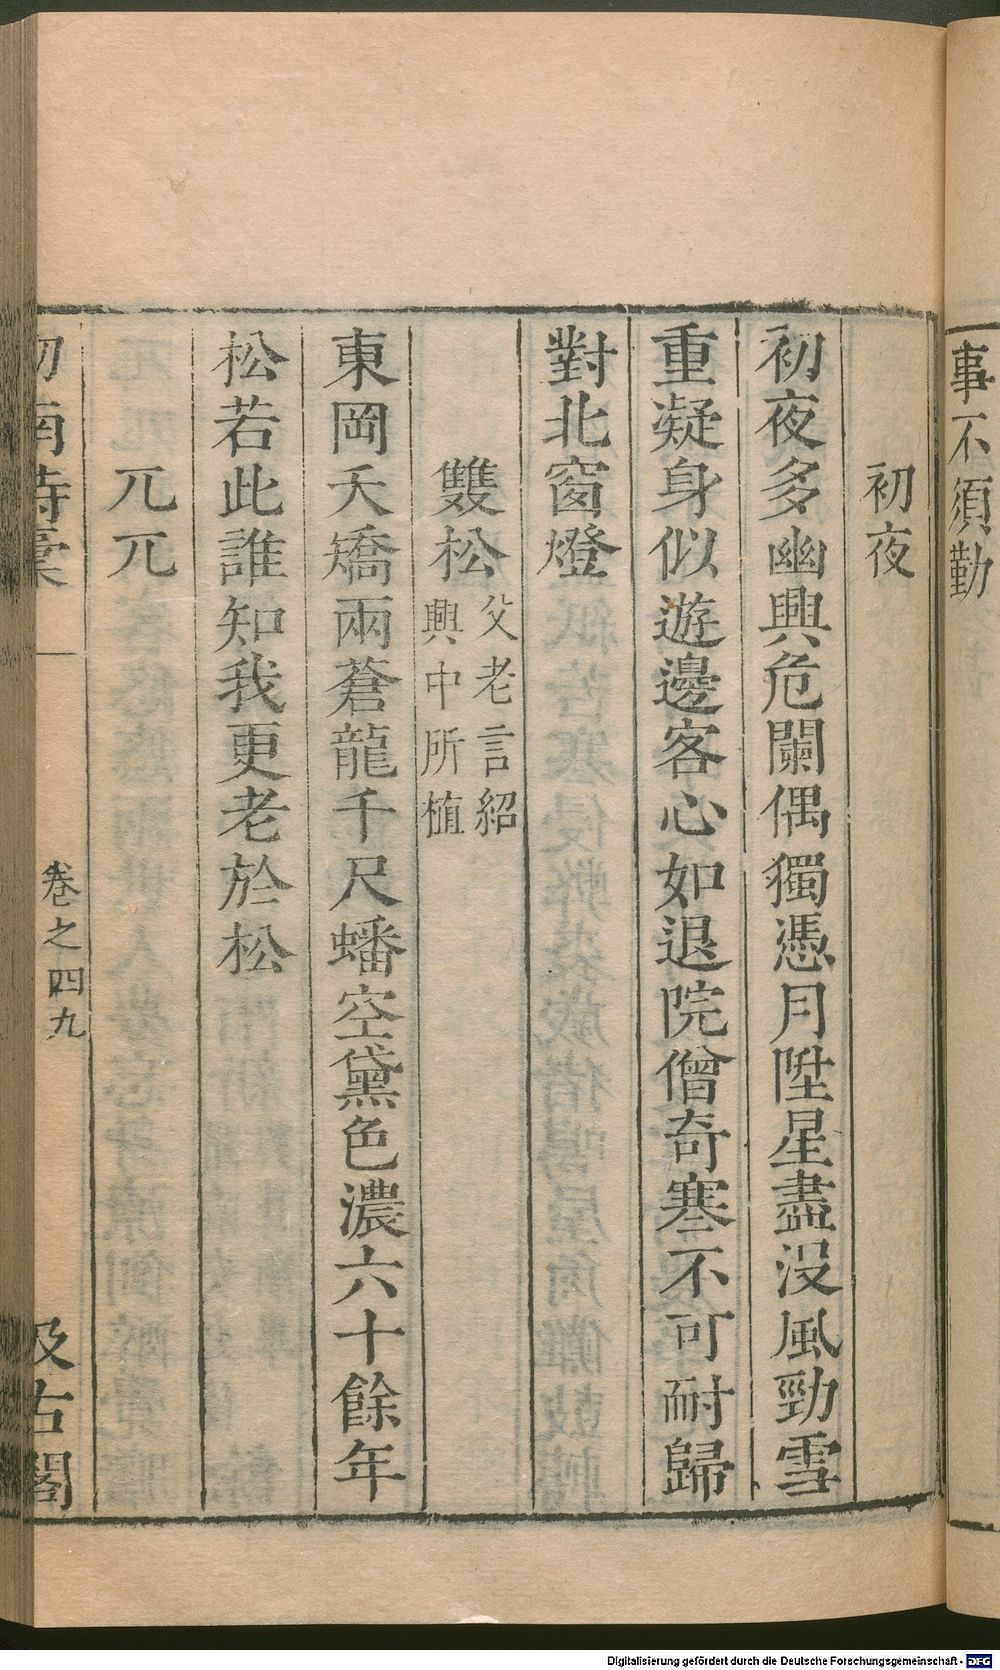 事不須勤
初夜
初夜多幽興危闌偶獨憑月陞星盡沒風勁雪
重凝身似遊邊客心如退院僧奇寒不可耐歸
對北窗燈
雙松 父老言紹
興中所植
東岡夭矯兩蒼龍千尺蟠空黛色濃六十餘年
松若此誰知我更老於松
兀兀
劍南詩稾
卷之四九
汲古閣
Digitalisierung gefördert durch die Deutsche Forschungsgemeinschaft - DFG